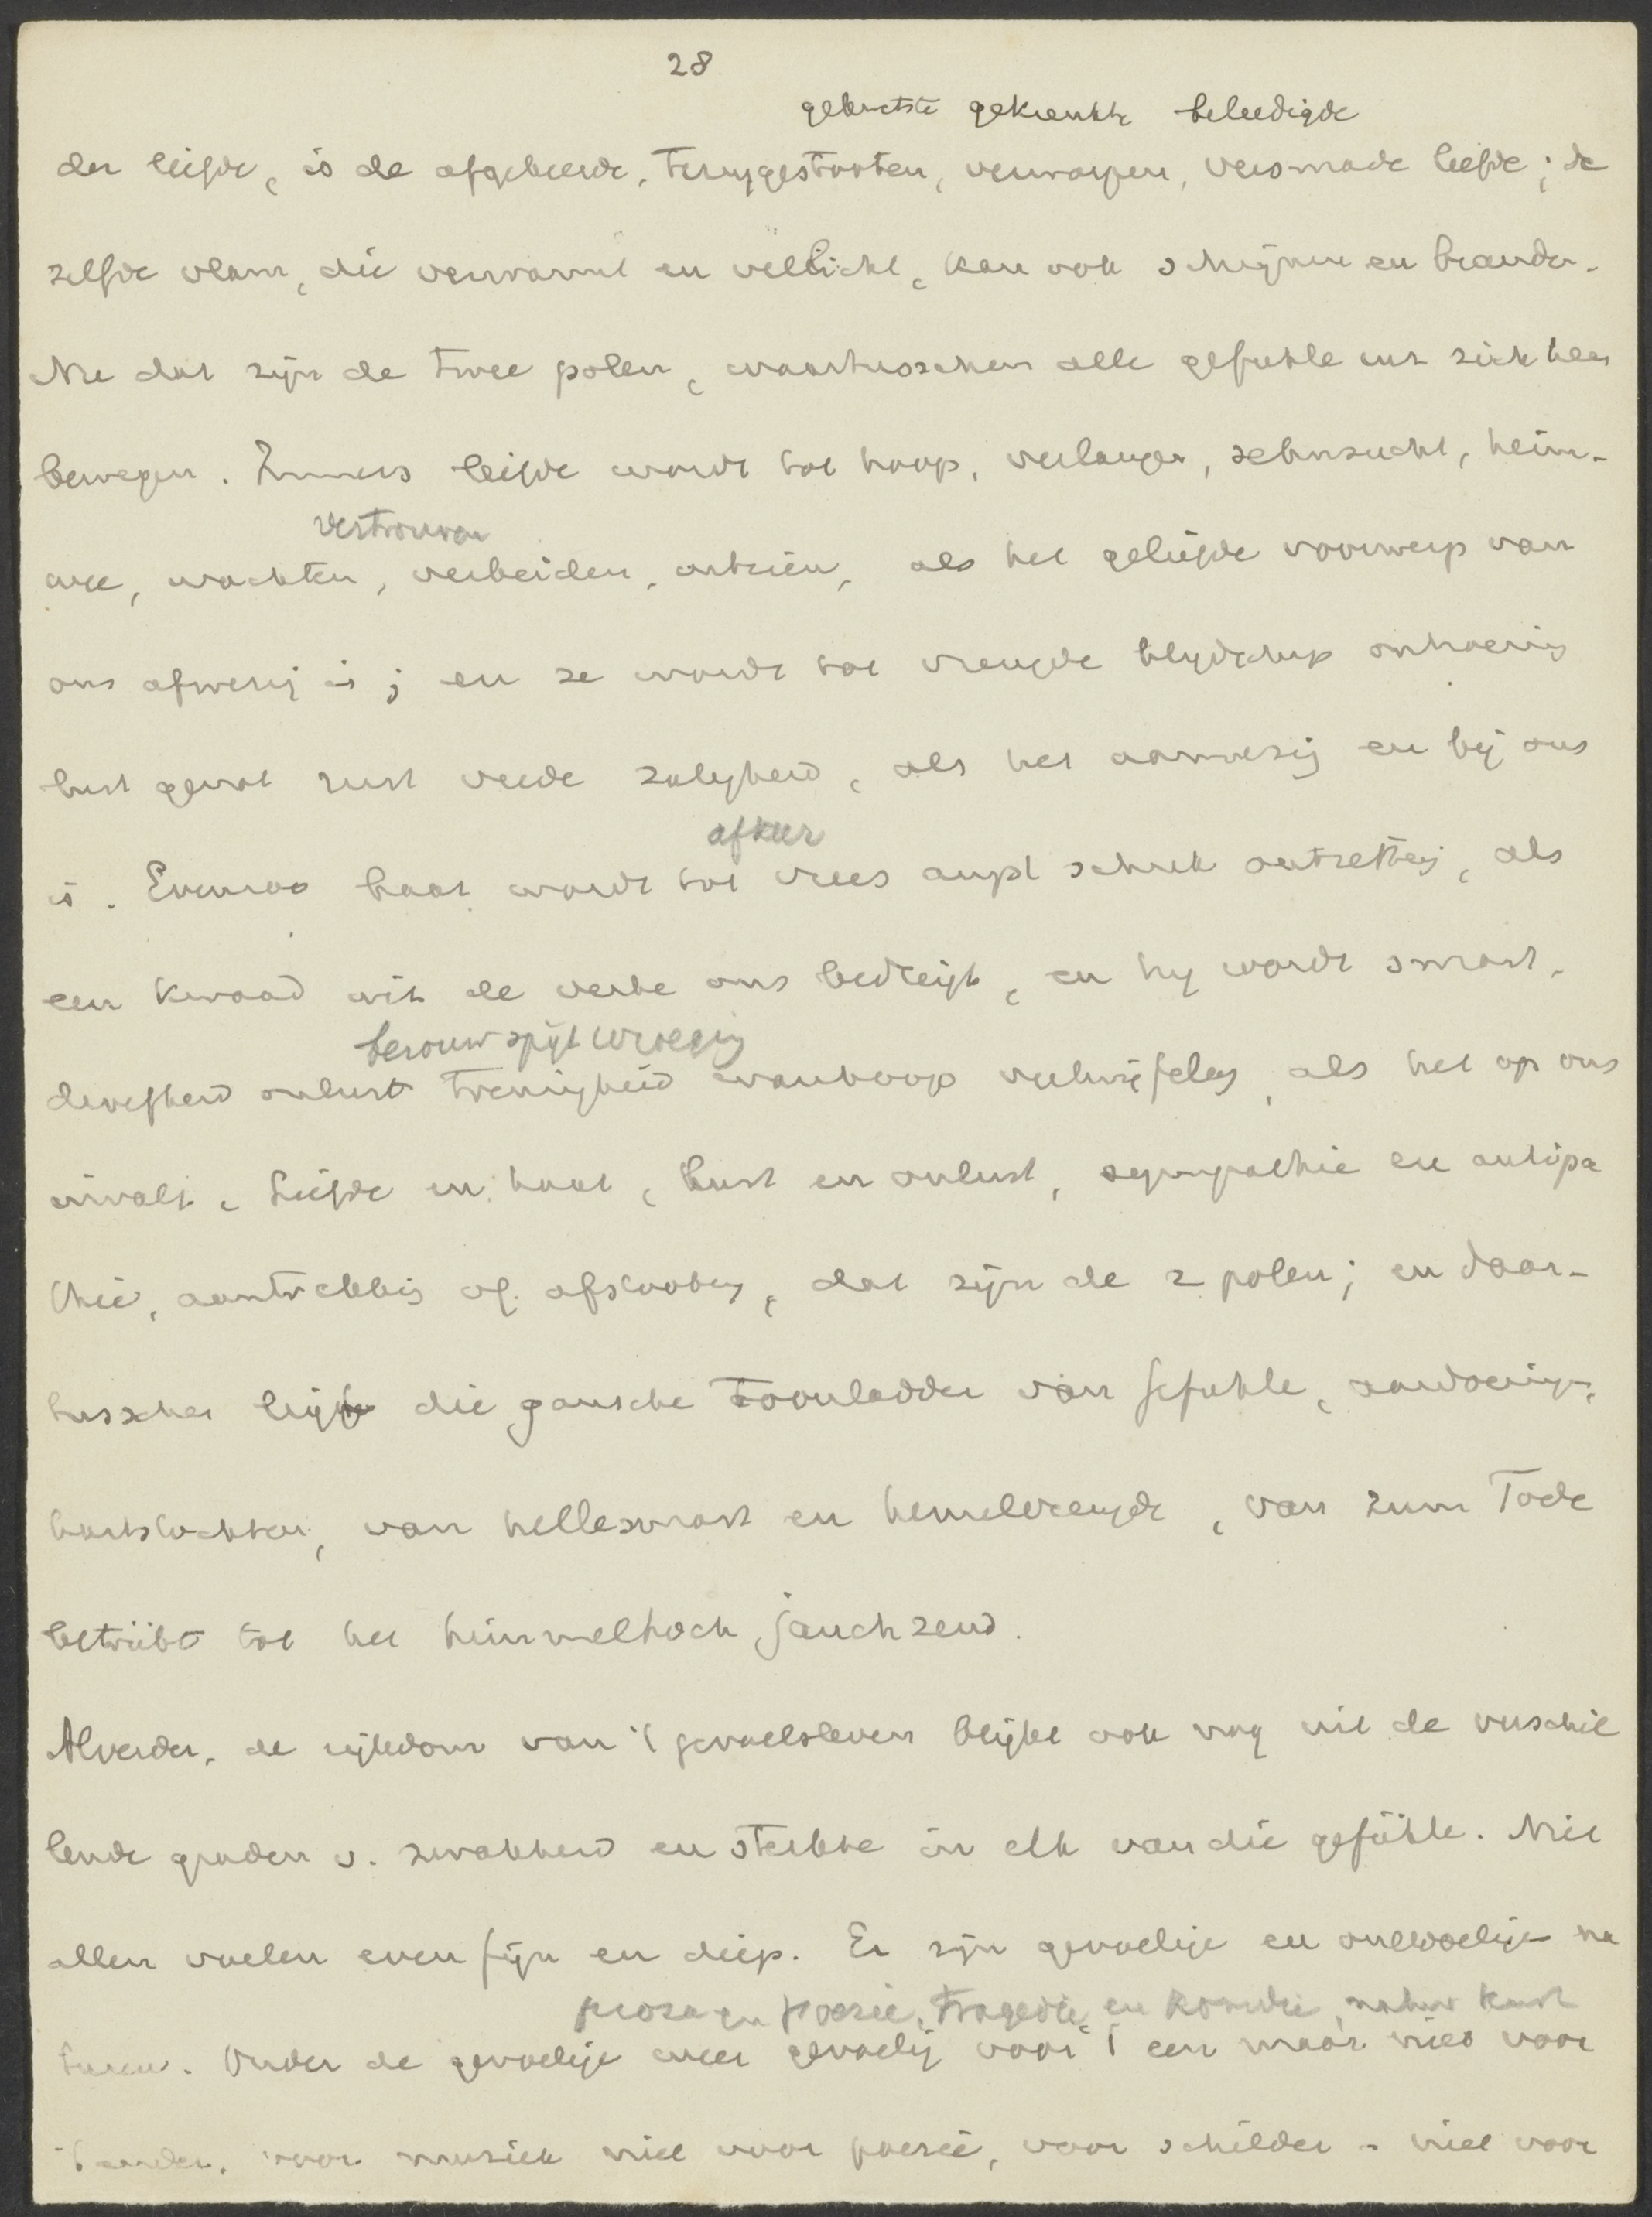 28
gekwetste gekrenkte beleedigde
der liefde, is de afgekeerde, teruggestooten, verworpen, versmade liefde; de
zelfde vlam, die verwarmt en verlicht, kan ook schrijnen en branden.
Nu dat zijn de twee polen, waartusschen alle gefühle enz zich heen
bewegen. Immers liefde wordt tot hoop, verlangen, sehnsucht, heim-
vertrouwen
wee, wachten, verbeiden, als het geliefde voorwerp van
ons afwezig is; en ze wordt tot vreugde blydschap ontroering
lust genot rust vrede zaligheid, als het aanwezig en bij ons
afkeer
is. Evenzoo haat wordt tot vrees angst schrik ontzetting, als
een kwaad uit de verte ons bedreigt, en hy wordt smart,
berouw spijt wroeging
droefheid onlust treurigheid wanhoop vertwijfeling, als het op ons
invalt. Liefde en haat, lust en onlust, sympathie en antipa
thie, aantrekking of afstooting, dat zijn de 2 polen; en daar-
tusschen ligt die gansche toonladder van gefühle, aandoeningen,
hartstochten, van hellesmart en hemelvreugde, van zum Tode
betrübt tot het himmelhoch jauchzend.
Alverder, de rijkdom van 't gevoelsleven blijkt ook nog uit de verschil
lende graden v. zwakheid en sterkte in elk van die gefühle. Niet
allen voelen even fijn en diep. Er zijn gevoelige en ongevoelige na
proza en poezie, tragedie en komedie, natuur kunst
turen. Onder de gevoelige weer gevoelig voor 't een maar niet voor
't ander, voor muziek niet voor poezië, voor schilder - niet voor